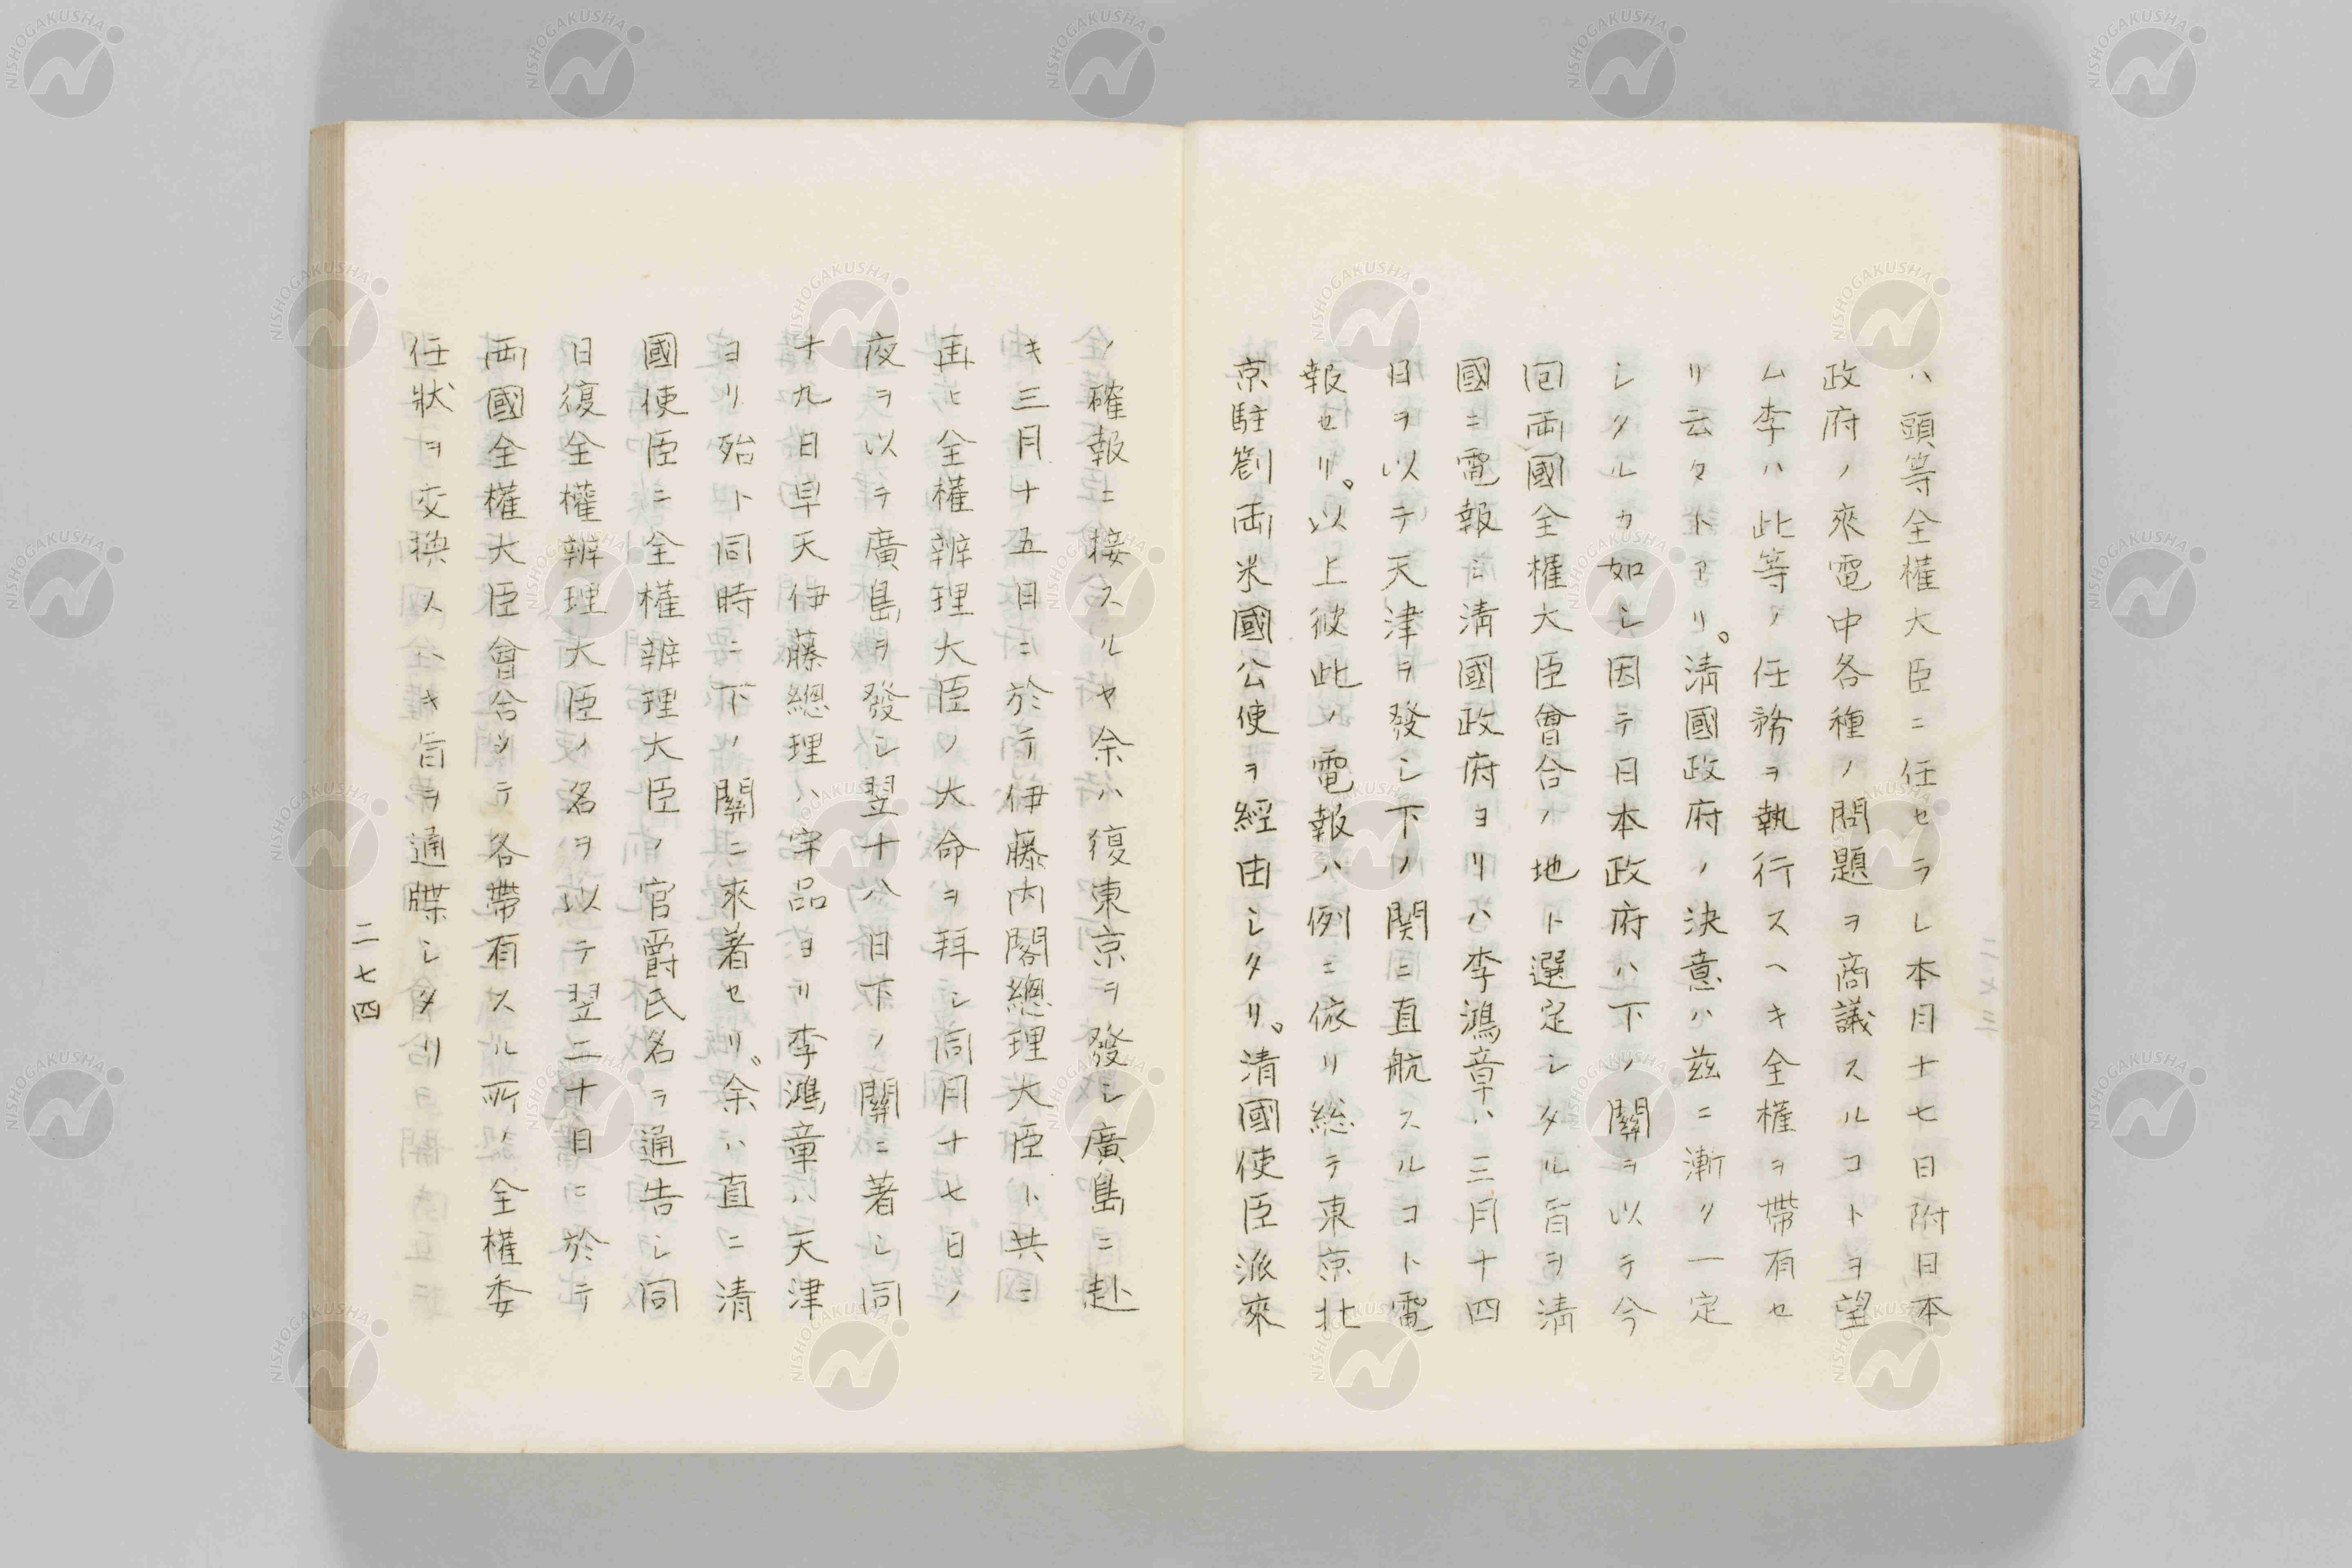 ハ頭等全權大臣ニ任セラレ本月十七日附日本
政府ノ來電中各種ノ問題ヲ商議スルコトヲ望
ム李ハ此等ノ任務ヲ執行スヘキ全權ヲ帶有セ
リ云々トアリ。清國政府ノ決意ハ茲ニ漸ク一定
シタルカ如シ因テ日本政府ハ下ノ關ヲ以テ今
回両國全權大臣會合ノ地ト選定シタル旨ヲ淸
國ニ電報シ淸國政府ヨリハ李鴻章ハ三月十四
日ヲ以テ天津ヲ發シ下ノ関ニ直航スルコト電
報セリ。以上彼此ノ電報ハ例ニ依リ総テ東京北
京駐劄両米國公使ヲ經由シタリ。清國使臣派來
ノ確報ニ接スルヤ余ハ復東京ヲ發シ廣島ニ赴
キ三月十五日ニ於テ伊藤内閣總理大臣ト共ニ
全權辨理大臣ノ大命ヲ拜シ同月十七日ノ
夜ヲ以テ廣島ヲ發シ翌十八日下ノ關ニ著シ同
十九日早天伊藤總理ハ宇品ヨリ李鴻章ハ天津
ヨリ殆ト同時ニ下ノ關ニ來著セリ。余ハ直ニ清
國使臣ニ全權辨理大臣ノ官爵氏名ヲ通告シ同
日復全權辨理大臣ノ名ヲ以テ翌二十日ニ於テ
両國全權大臣會合シテ各帶有スル所ノ全權委
任狀ヲ交換スヘキ旨ヲ通牒シタリ
二七四
NISHOGAKUSHA